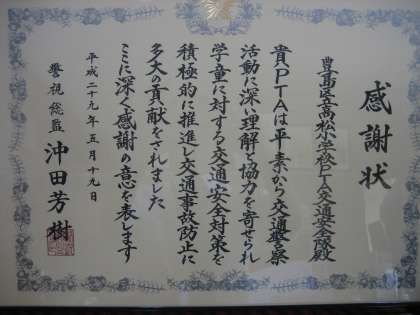 感謝状
豊島区立高松小学校PTA交通安全隊殿
貴PTAは平素から交通警察
活動に深い理解と協力を寄せられ
学童に対する交通安全対策を
積極的に推進し交通事故防止に
多大の貢献をされました
ここに深く感謝の意を表します
平成二十九年五月十九日
警視総監 沖田芳樹